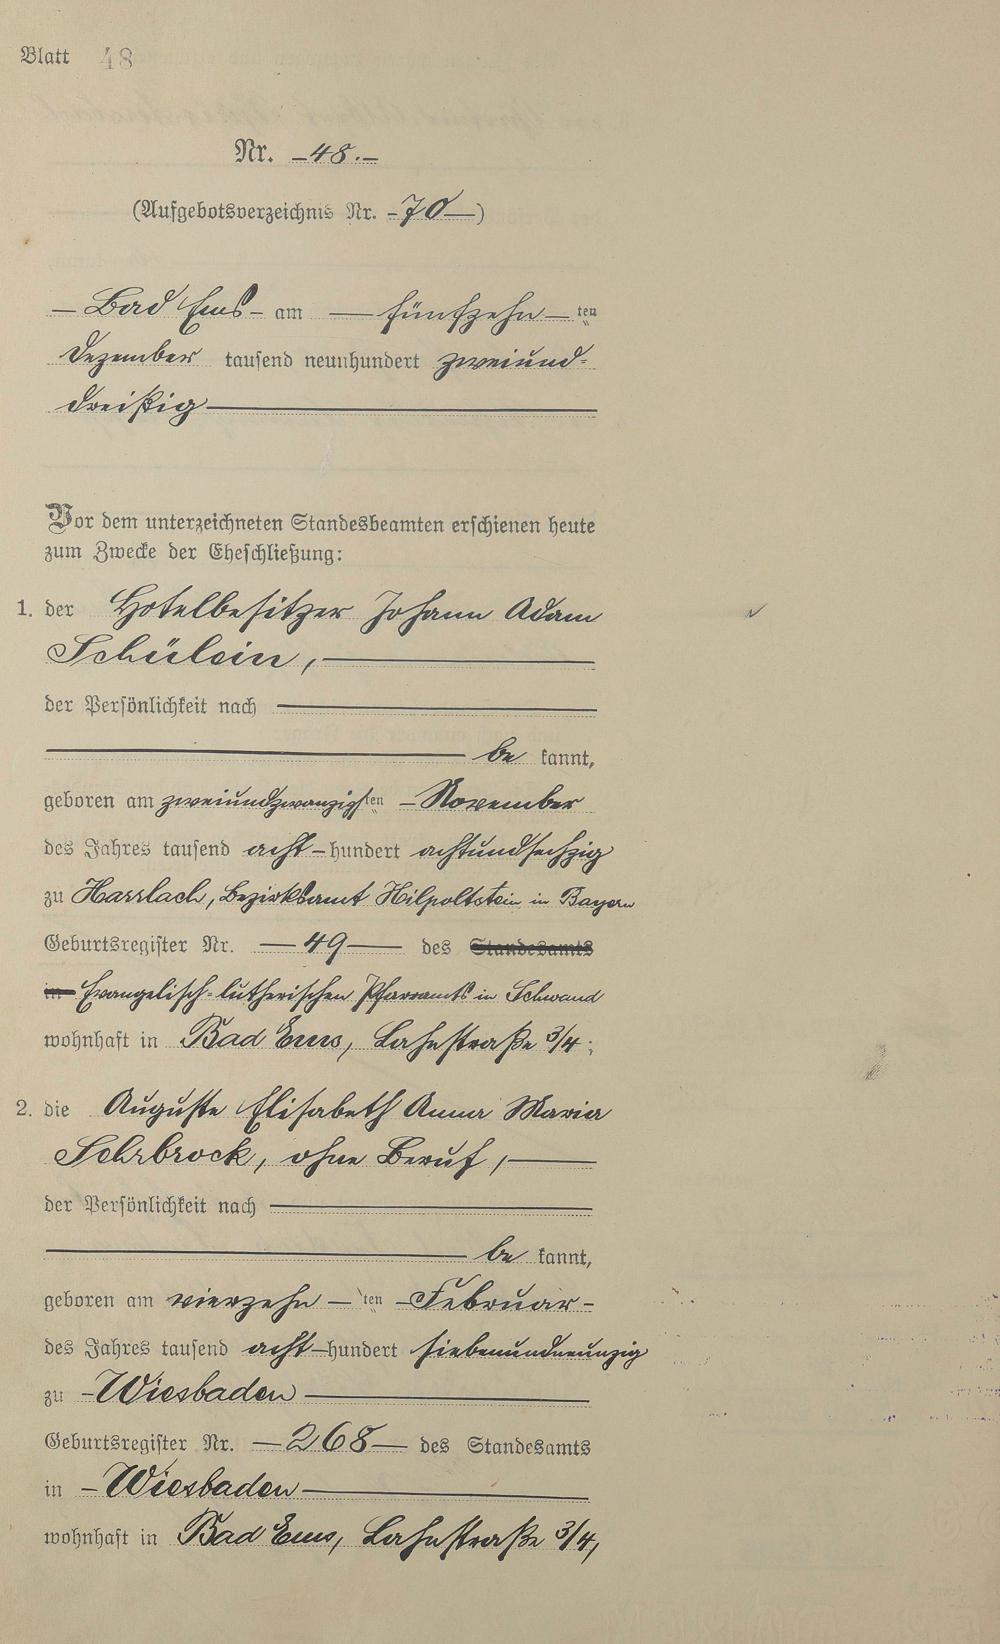 Blatt 48
Nr. -48.-
(Aufgebotsverzeichnis Nr. -70-)
- Bad Ems - am — fünfzehn - ten
Dezember tausend neunhundert zweiund-
dreißig
Vor dem unterzeichneten Standesbeamten erschienen heute
zum Zwecke der Eheschließung:
1. der Hotelbesitzer Johann Adam
Schülein,
der Persönlichkeit nach
be kannt,
geboren am zweiundzwanzigsten - November
des Jahres tausend acht - hundert achtundsechzig
zu Harrlach, Bezirksamt Hilpoltstein in Bayern
Geburtsregister Nr. — 49 — des Standesamts
in Evangelisch-lutherischen Pfarramts in Schwand
wohnhaft in Bad Ems, Lahnstraße 3/4;
2. die Auguste Elisabeth Anna Maria
Sehrbrock, ohne Beruf,
der Persönlichkeit nach
be kannt,
geboren am vierzehn - ten - Februar -
des Jahres tausend acht - hundert siebenundneunzig
zu - Wiesbaden
Geburtsregister Nr. - 268 - des Standesamts
in - Wiesbaden
wohnhaft in Bad Ems, Lahnstraße 3/4,